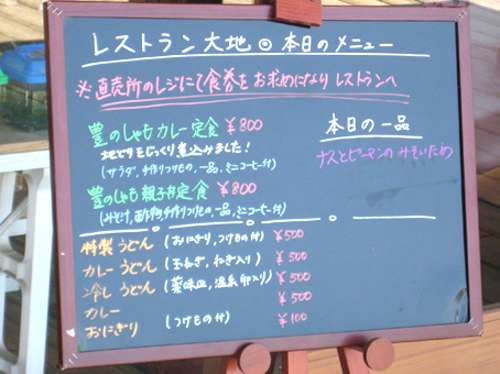 レストラン大地◎本日のメニュー
※直売所のレジにて食券をお求めになりレストランへ
豊のしゃもカレー定食 ¥800
地どりをじっくり煮込みました!
(サラダ,手作りつけもの,一品,ミニコーヒー付)
豊のしゃも親子丼定食 ¥800
(みそ汁,酢物,手作りつけもの,一品,ミニコーヒー付)
本日の一品
ナスとピーマンのみそいため
特製うどん (おにぎり,つけもの付) ¥500
カレーうどん (玉ねぎ,ねぎ入り) ¥500
冷しうどん (薬味皿,温泉卵入り) ¥500
カレー ¥500
おにぎり (つけもの付) ¥100